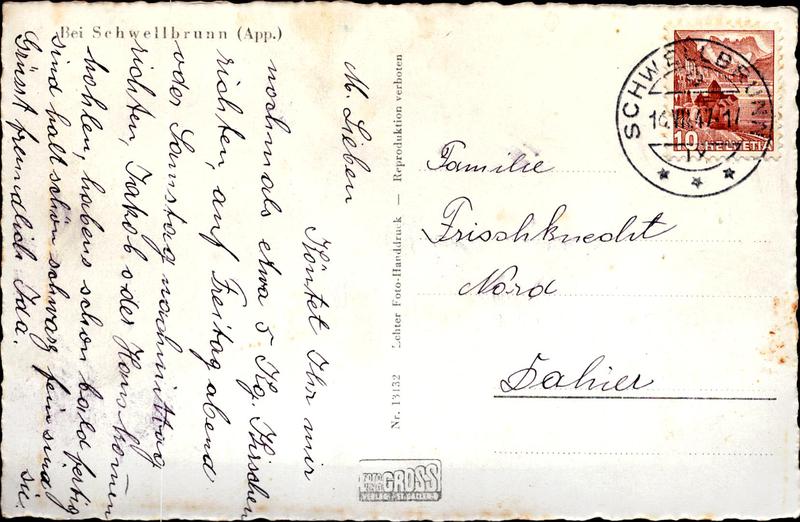 Bei Schwellbrunn (App.)
M. Lieben
Könntet Ihr mir
nochmals etwa 5 Kg. Kirschen
richten, auf Freitag abend
oder Samstag nachmittag
richten, Jakob oder Hans kommen
hohlen, habens schon bald fertig
sind halt schön schwarz fein sind
sie.
Grüsst freundlich Ida.
Nr. 13132 Echter Foto-Handdruck — Reproduktion verboten
FOTO
GROSS
VERLAG ST. GALLEN
SCHWELLBRUNN
10 HELVETIA
Familie
Frischknecht
Nord
Dahier